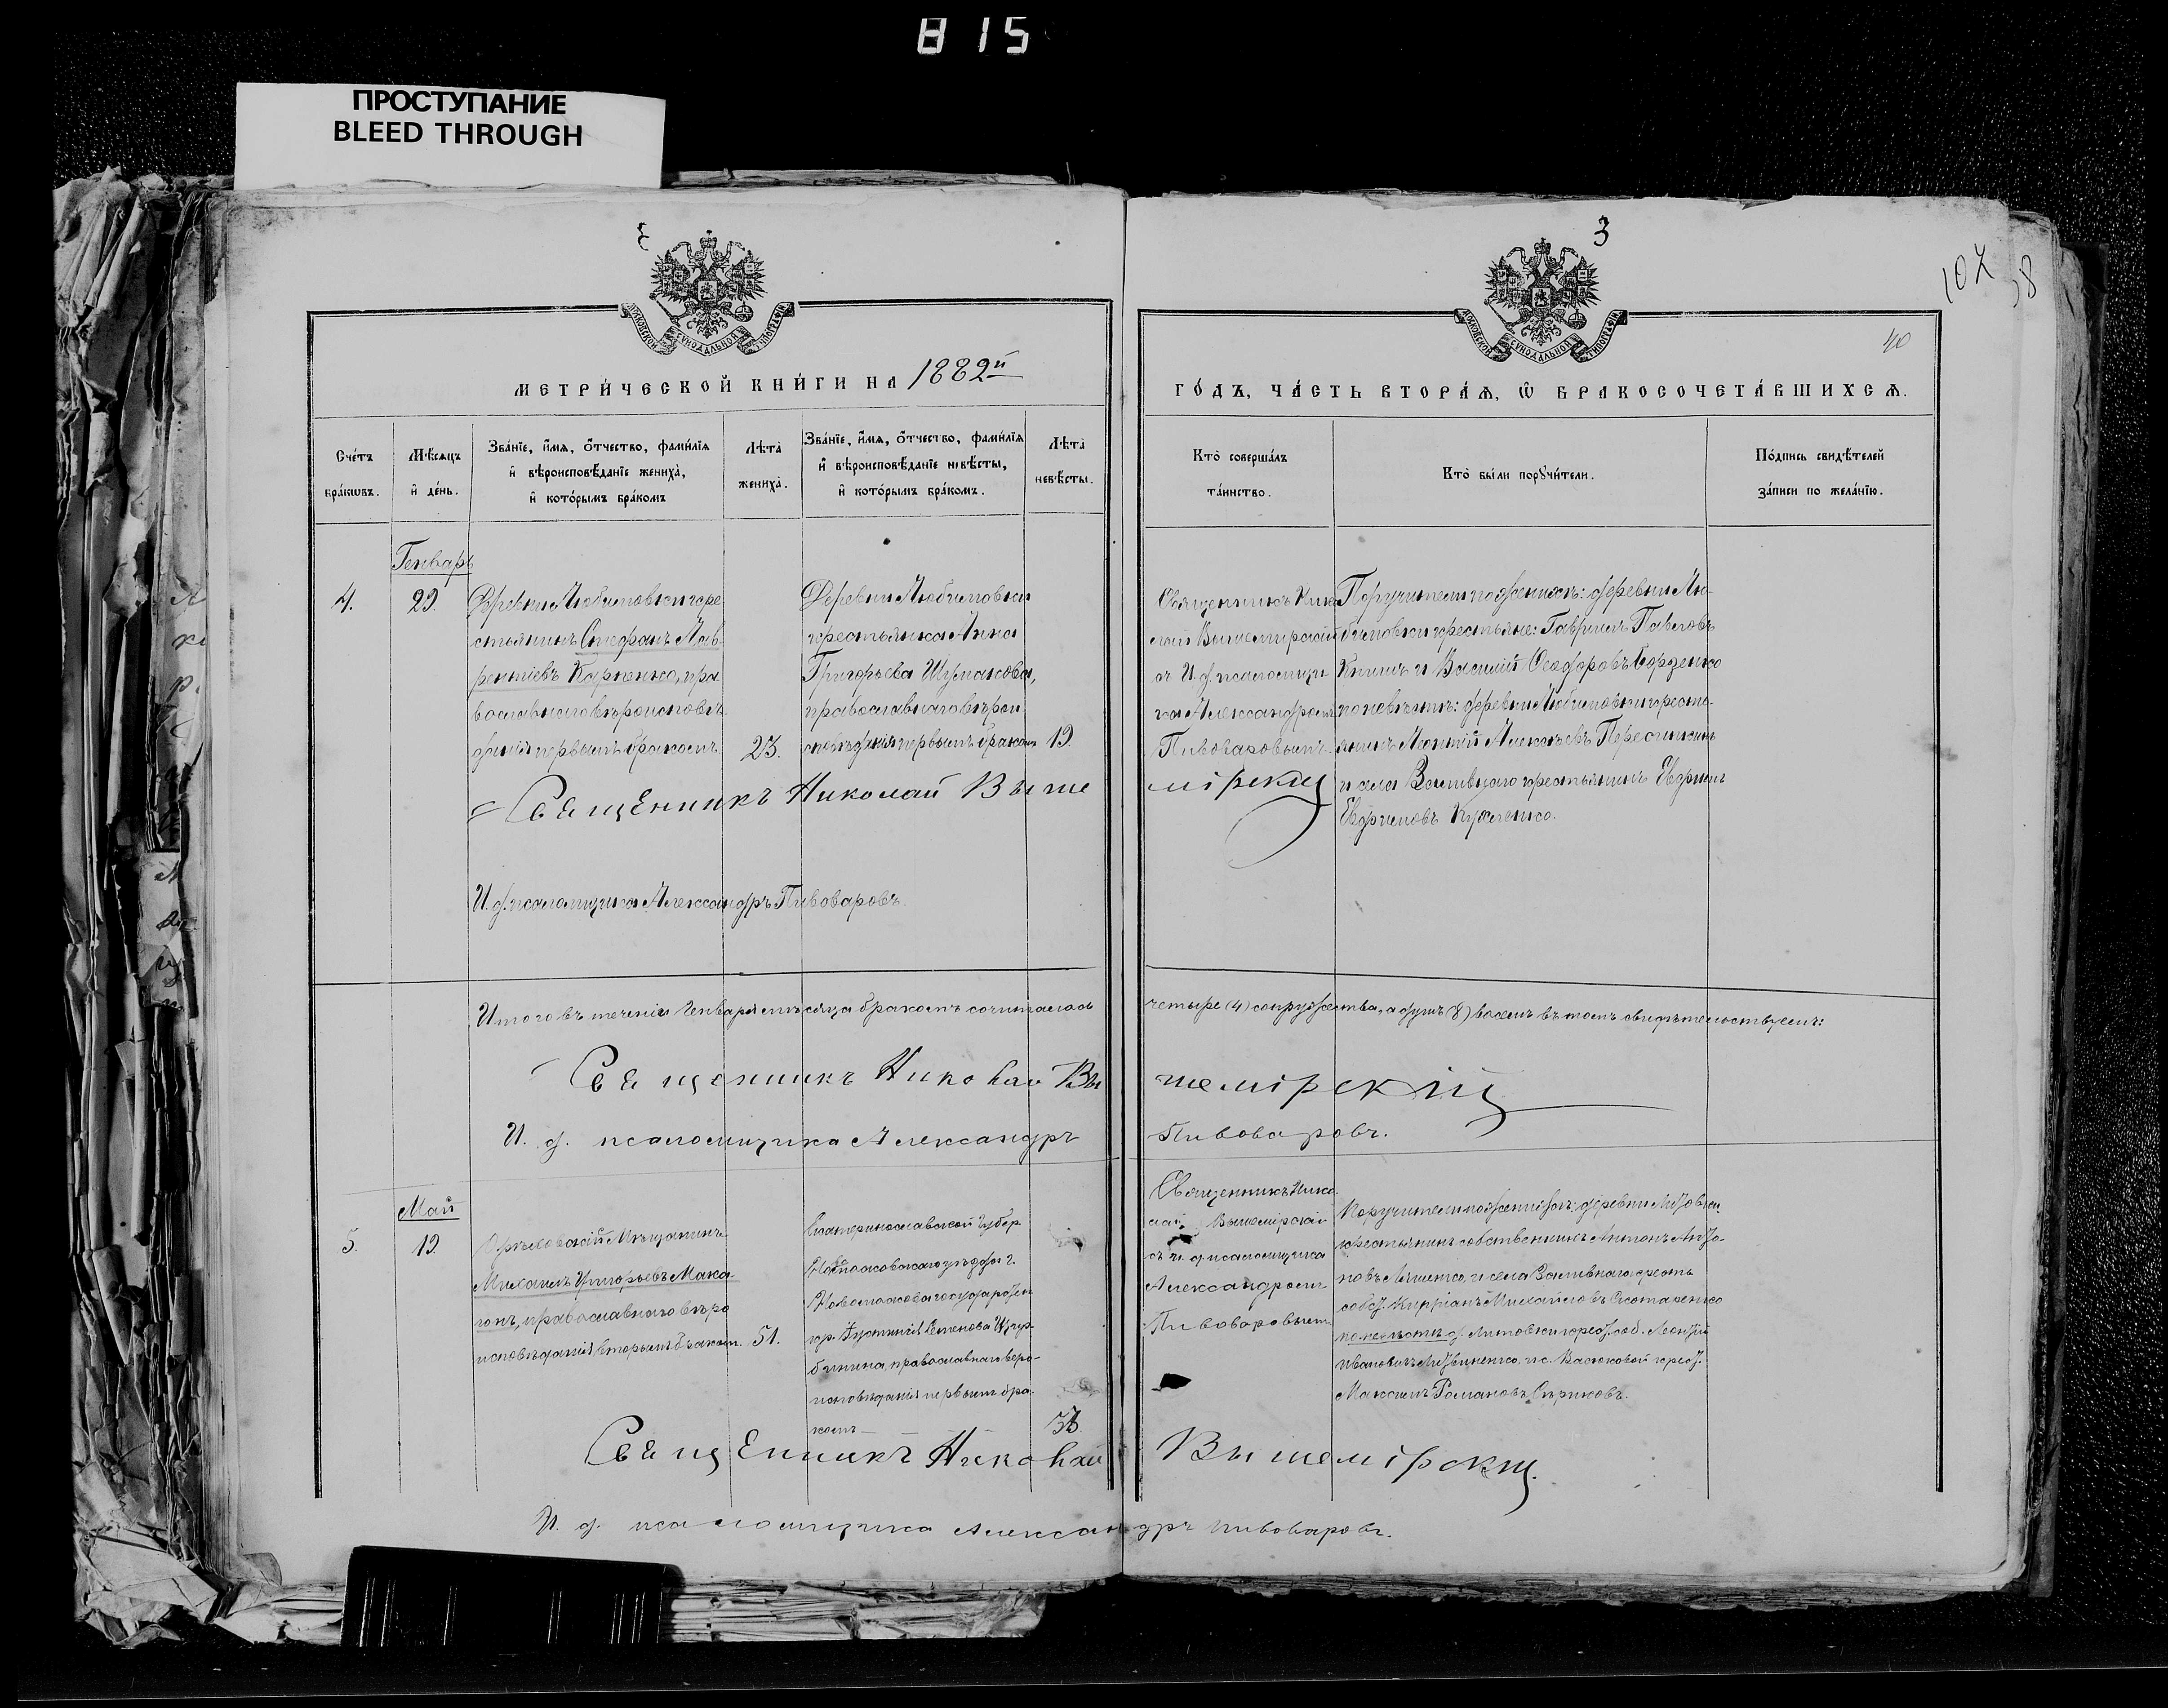 815
ПРОСТУПАНИЕ
BLEED THROUGH
3
3
107
58
40
МОСКОВСКОЙ СѴНОДАЛЬНОЙ ТИПОГРАФІИ
МОСКОВСКОЙ СѴНОДАЛЬНОЙ ТИПОГРАФІИ
МЕТРИ́ЧЕСКОЙ КНИ́ГИ НА 1882й
ГО́ДЪ, ЧА́СТЬ ВТОРА́Ѧ, Ѡ҆ БРАКОСОЧЕТА́ВШИХСѦ.
Сче́тъ
бра́кѡвъ.
Мѣ́сяцъ
и҆ де́нь.
Зва́нїе, и҆́мя, ѻ҆́тчество, фами́лїя
и҆ вѣроисповѣ́данїе жениха̀,
и҆ кото́рымъ бра́комъ
Лѣ́та
жениха̀.
Зва́нїе, и҆́мя, ѻ҆́тчество, фами́лїя
и҆ вѣроисповѣ́данїе невѣ́сты,
и҆ кото́рымъ бра́комъ.
Лѣ́та
невѣ́сты.
Кто̀ соверша́лъ
та́инство.
Кто̀ бы́ли порꙋчи́тели.
По́дпись свидѣ́телей
за́писи по жела́нїю.
Генварь
4.
29.
Деревни Любимовки кре
стьянинъ Стефанъ Лав-
рентіевъ Карпенко, пра
вославнаго вѣроисповѣ-
данія первымъ бракомъ
23.
Деревни Любимовки
крестьянка Анна
Григорьева Шумакова,
православнаго вѣрои
сповѣданія первымъ бракомъ
19.
Священникъ Нико
лай Вышемирскій
съ И. д. псаломщи
ка Александромъ
Пивоваровымъ.
Поручители по женихѣ: деревни Лю-
бимовки крестьяне: Гавріилъ Павловъ
Книшъ и Василій Ѳеодоровъ Борденко
по невѣстѣ: деревни Любимовки кресть-
янинъ Леонтій Алексѣевъ
и села Заливнаго крестьянинъ Евфимъ
Евфимовъ
Священникъ Николай Выше
мірскій
И. д. псаломщика Александръ Пивоваровъ.
Итого въ теченіи Генваря мѣсяца бракомъ сочиталось
четыре (4) сопружества, а душъ (8) восемь въ томъ свидѣтельствуемъ:
Священникъ Николай Вы
шемірскій
И. д. псаломщика Александръ
Пивоваровъ.
Май
5.
19.
Орѣховскій Мѣщанинъ
Михаилъ Григорьевъ Мака-
ронъ, православнаго вѣро
исповѣданія вторымъ бракомъ.
51.
Екатеринославской Губер
Новомосковскаго уѣзда г.
Новомосковска государствен
кр. Іустинія Семенова
православнаго веро-
исповѣданія первымъ бра-
комъ
Священникъ Нико
лай Вышемірскій
съ и. д. псаломщика
Александромъ
Пивоваровымъ
Поручители по женихѣ: деревни
крестьянинъ собственникъ Антонъ
и села Заливнаго кресть
собст. Кирріанъ Михайловъ
по невѣстѣ д. Литовки крест. соб. Леонтій
Ивановичъ Литвиненко, и с. Васюковой крест.
Максимъ Романовъ Сѣриковъ.
Священникъ Николай
Вышемірскій.
И. д. псаломщика Александръ Пивоваровъ.